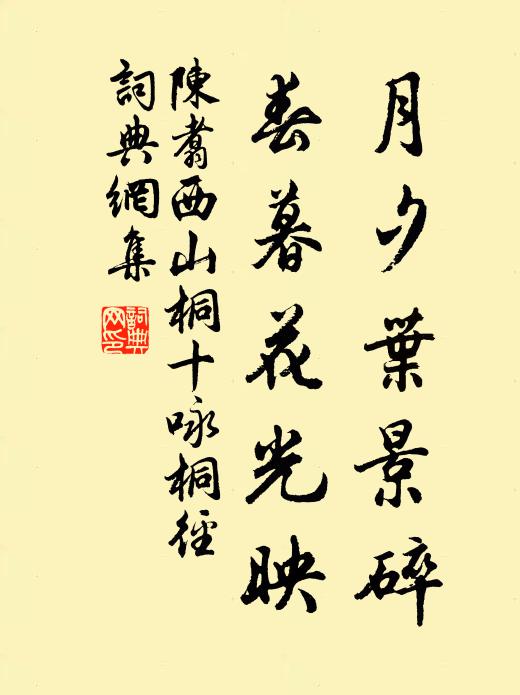 月夕葉景碎
春暮花光映
陳翥西山桐十咏桐徑
詞典網集
詞典網印